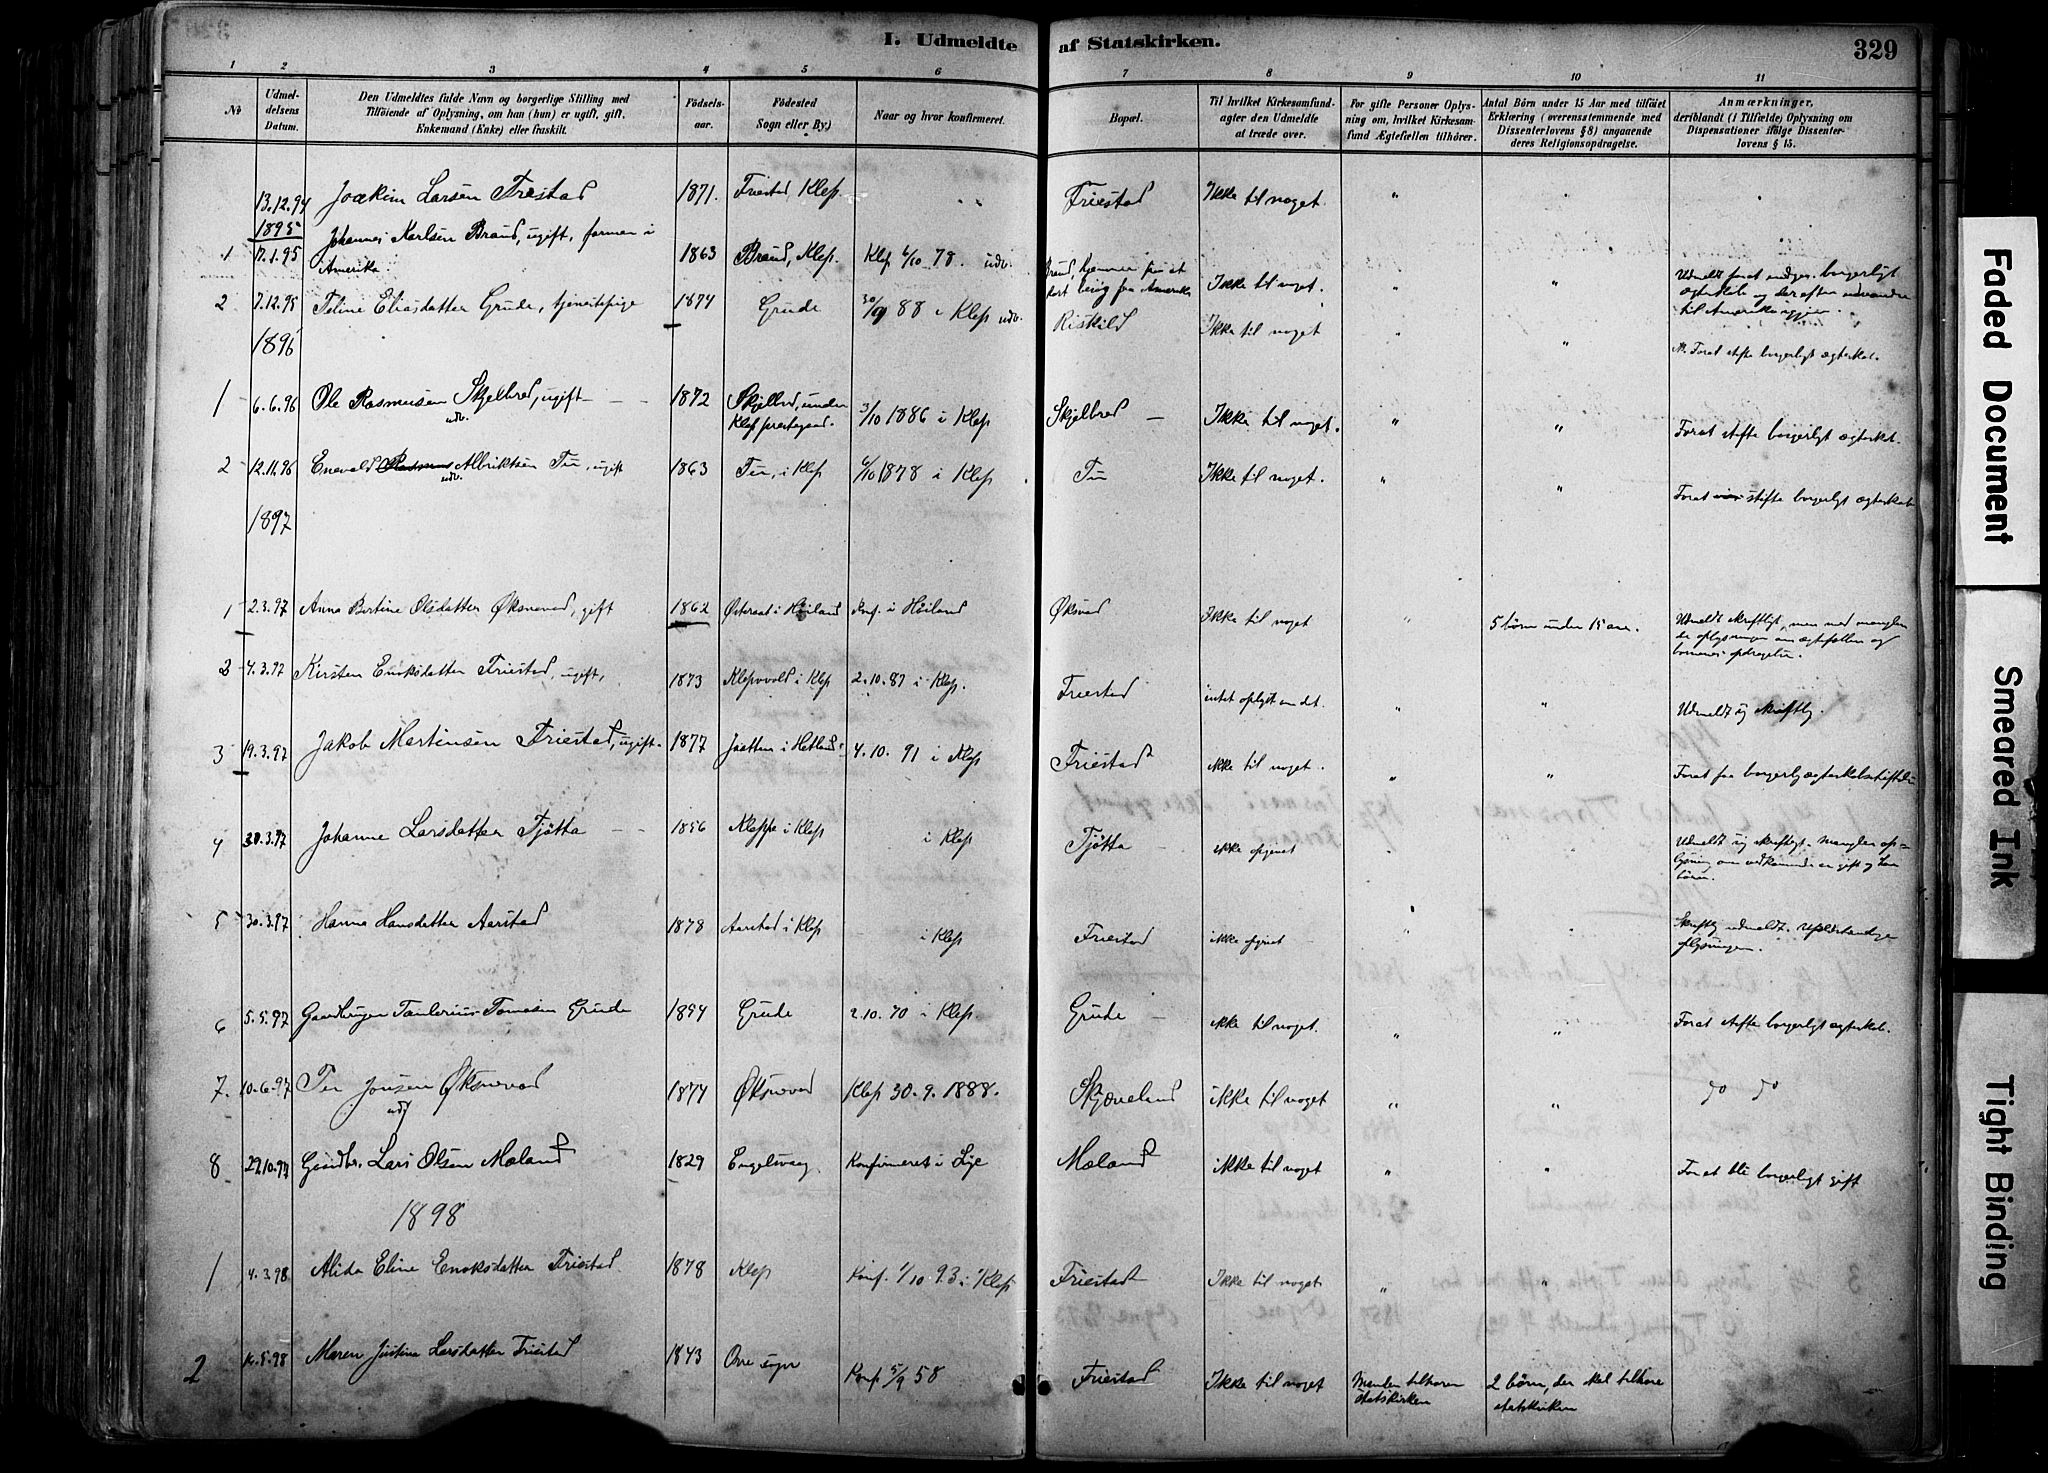 I. Udmeldte af Statskirken. 329
1 2 3 4 5 6 7 8 9 10 11
No
Udmeldelsens Datum.
Den Udmeldtes fulde Navn og borgerlige Stilling med Tilföiende af Oplysning, om han (hun) er ugift, gift, Enkemand (Enke) eller fraskilt.
Födselsaar.
Födested (Sogn eller By.)
Naar og hvor konfirmeret.
Bopæl.
Til hvilket Kirkesamfund agter den Udmeldte at træde over.
For gifte Personer Oplysning om, hvilket Kirkesamfund Ægtefællen tilhörer.
Antal Börn under 15 Aar med tilföiet Erklæring (overensstemmende med Dissenterlovens § 8) angaaende deres Religionsopdragelse.
Anmærkninger, deriblandt (i Tilfælde) Oplysning om Dispensationer ifölge Dissenterlovens § 15.
13.12.94 Joakim Larsen Friestad 1871. Friestad, Klep. Friestad Ikke til noget. " "
1895
1 17.1.95 Johannes Karlsen Braud, ugift, farmer i Amerika. 1863 Braud, Klep. Klep 6/10 78. udv. Braud, kort besøg fra Amerika Ikke til noget. " Udmeldt forat indgaa borgerligt ægteskab og derefter udvandre til Amerika igjen.
2 7.12.95 Teline Eliasdatter Grude, tjenestepige 1874 Grude 30/9 88 i Klep udv. Riskild Ikke til noget " " Forat stifte borgerligt ægteskab.
1896
1 6.6.96 Ole Rasmussen Skjelbred, ugift 1872 Skjelbred, under Klep prestegaard. 3/10 1886 i Klep Skjelbred Ikke til noget. " " Forat stifte borgerligt ægteskab.
udv.
2 12.11.96 Enevald Albriktsen Tu, ugift 1863 Tu, i Klep 6/10 1878 i Klep Tu Ikke til noget. " " Forat stifte borgerligt ægteskab
udv.
1897
1 2.3.97 Anna Bertine Olsdatter Øksnevad, gift 1862 Østraat i Høiland Konf. i Høiland Øksnevad Ikke til noget " 5 børn under 15 aar. Udmeldt skriftligt, men med manglende oplysninger om ægtefællen og børnenes opdragelse.
2 4.3.97 Kirsten Enoksdatter Friestad, ugift, 1873 Klepvold i Klep 2.10.87 i Klep. Friestad intet oplyst om det. " " Udmeldt sig skriftlig.
3 19.3.97 Jakob Martinsen Friestad, ugift. 1877 Jaatten i Hetland 4.10.91 i Klep Friestad ikke til noget. " " Forat faa borgerlig ægteskabsstiftelse
4 30.3.97 Johanne Larsdatter Tjøtta 1856 Kleppe i Klep i Klep Tjøtta ikke opgivet Udmeldt sig skriftligt. Mangler oplysning om vedkommende er gift og har børn.
5 30.3.97 Hanna Hansdatter Aarstad 1878 Aarstad i Klep i Klep Friestad ikke opgivet " Skriftlig udmeldt. Ufuldstændige oplysninger.
6 5.5.97 Gaardbruger Tanlerius Tønnesen Grude 1854 Grude 2.10.70 i Klep. Grude ikke til noget. " " Forat stifte borgerligt ægteskab.
7. 10.6.97 Jonsen Øksnevad 1874 Øksnevad Klep 30.9.1888. Skjæveland ikke til noget " "
8 29.10.97 Gaardbr. Lars Olsen Mæland 1829 Engelsvaag. Konfirmeret i Lye Mæland ikke til noget " " For at bli borgerligt gift
1898
1 4.3.98 Alida Eline Enoksdatter Friestad. 1878 Klep Konf. 1/10 93 i Klep Friestad Ikke til noget " "
2 16.5.98 Maren Justina Larsdatter Friestad 1843 Orre sogn Konf 5/9 58 Friestad Ikke til noget Manden tilhører statskirken 2 børn, der skal tilhøre statskirken
Faded Document
Smeared Ink
Tight Binding